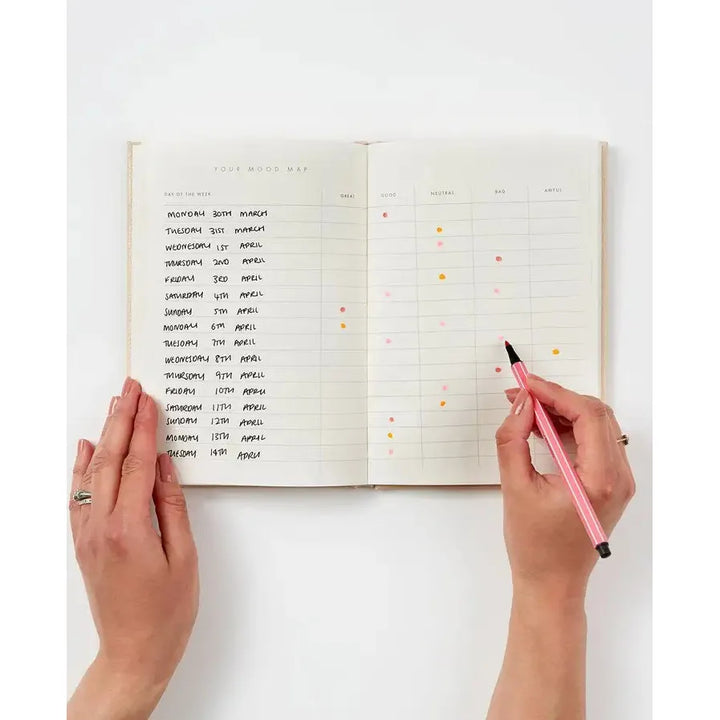 YOUR MOOD MAP
DAY OF THE WEEK GREAT GOOD NEUTRAL BAD AWFUL
MONDAY 30TH MARCH
TUESDAY 31ST MARCH
WEDNESDAY 1ST APRIL
THURSDAY 2ND APRIL
FRIDAY 3RD APRIL
SATURDAY 4TH APRIL
SUNDAY 5TH APRIL
MONDAY 6TH APRIL
TUESDAY 7TH APRIL
WEDNESDAY 8TH APRIL
THURSDAY 9TH APRIL
FRIDAY 10TH APRIL
SATURDAY 11TH APRIL
SUNDAY 12TH APRIL
MONDAY 13TH APRIL
TUESDAY 14TH APRIL